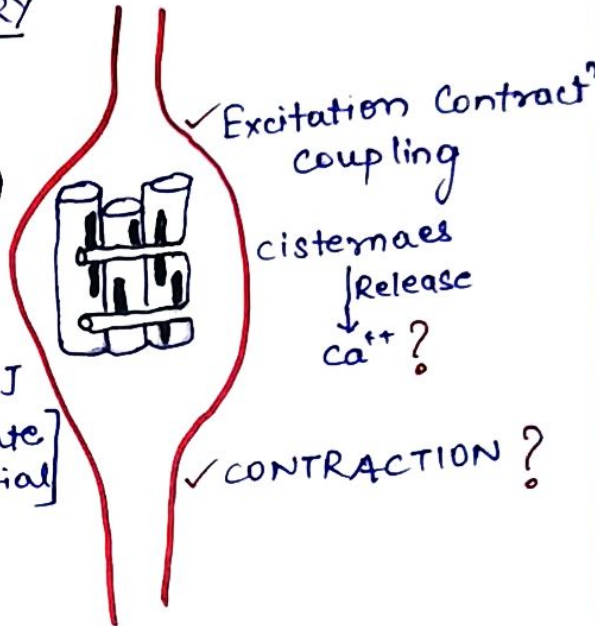 RY
✓ Excitation Contract^n
coupling
cisternaes
Release
Ca++ ?
J
te
ial]
✓ CONTRACTION ?